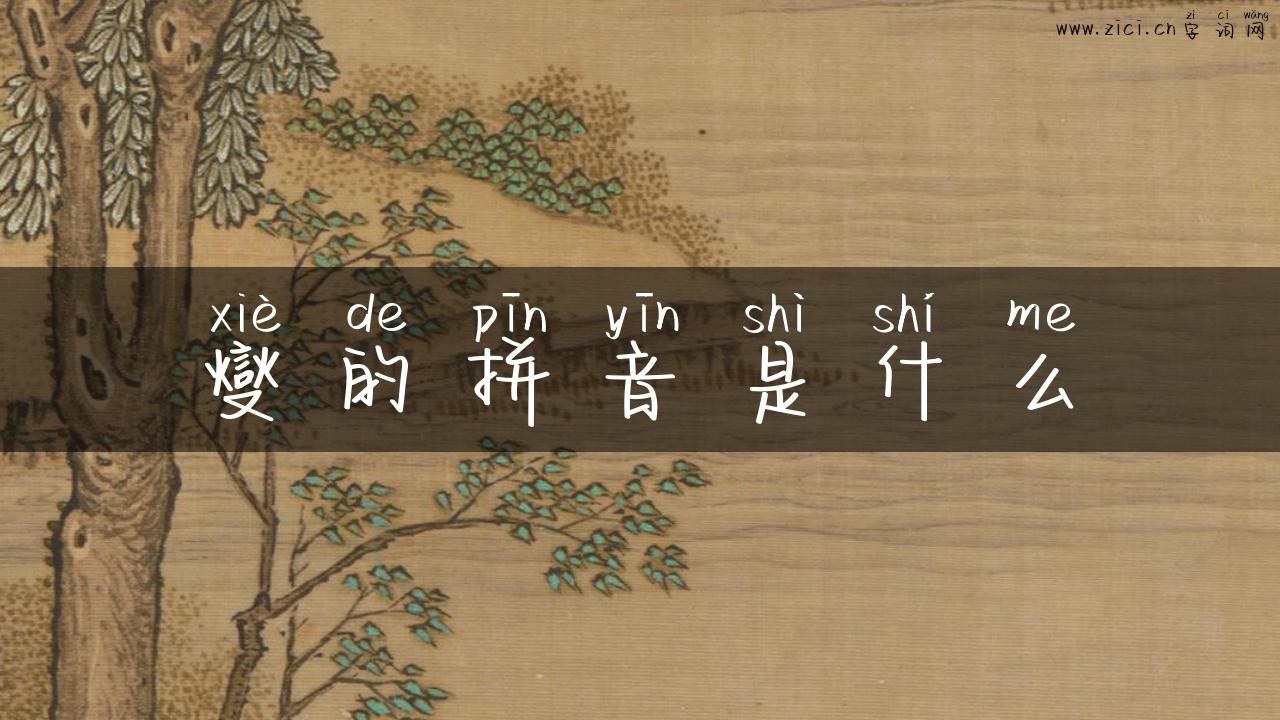 zì cí wǎng
www.zici.cn 字词网
xiè de pīn yīn shì shí me
燮的拼音是什么